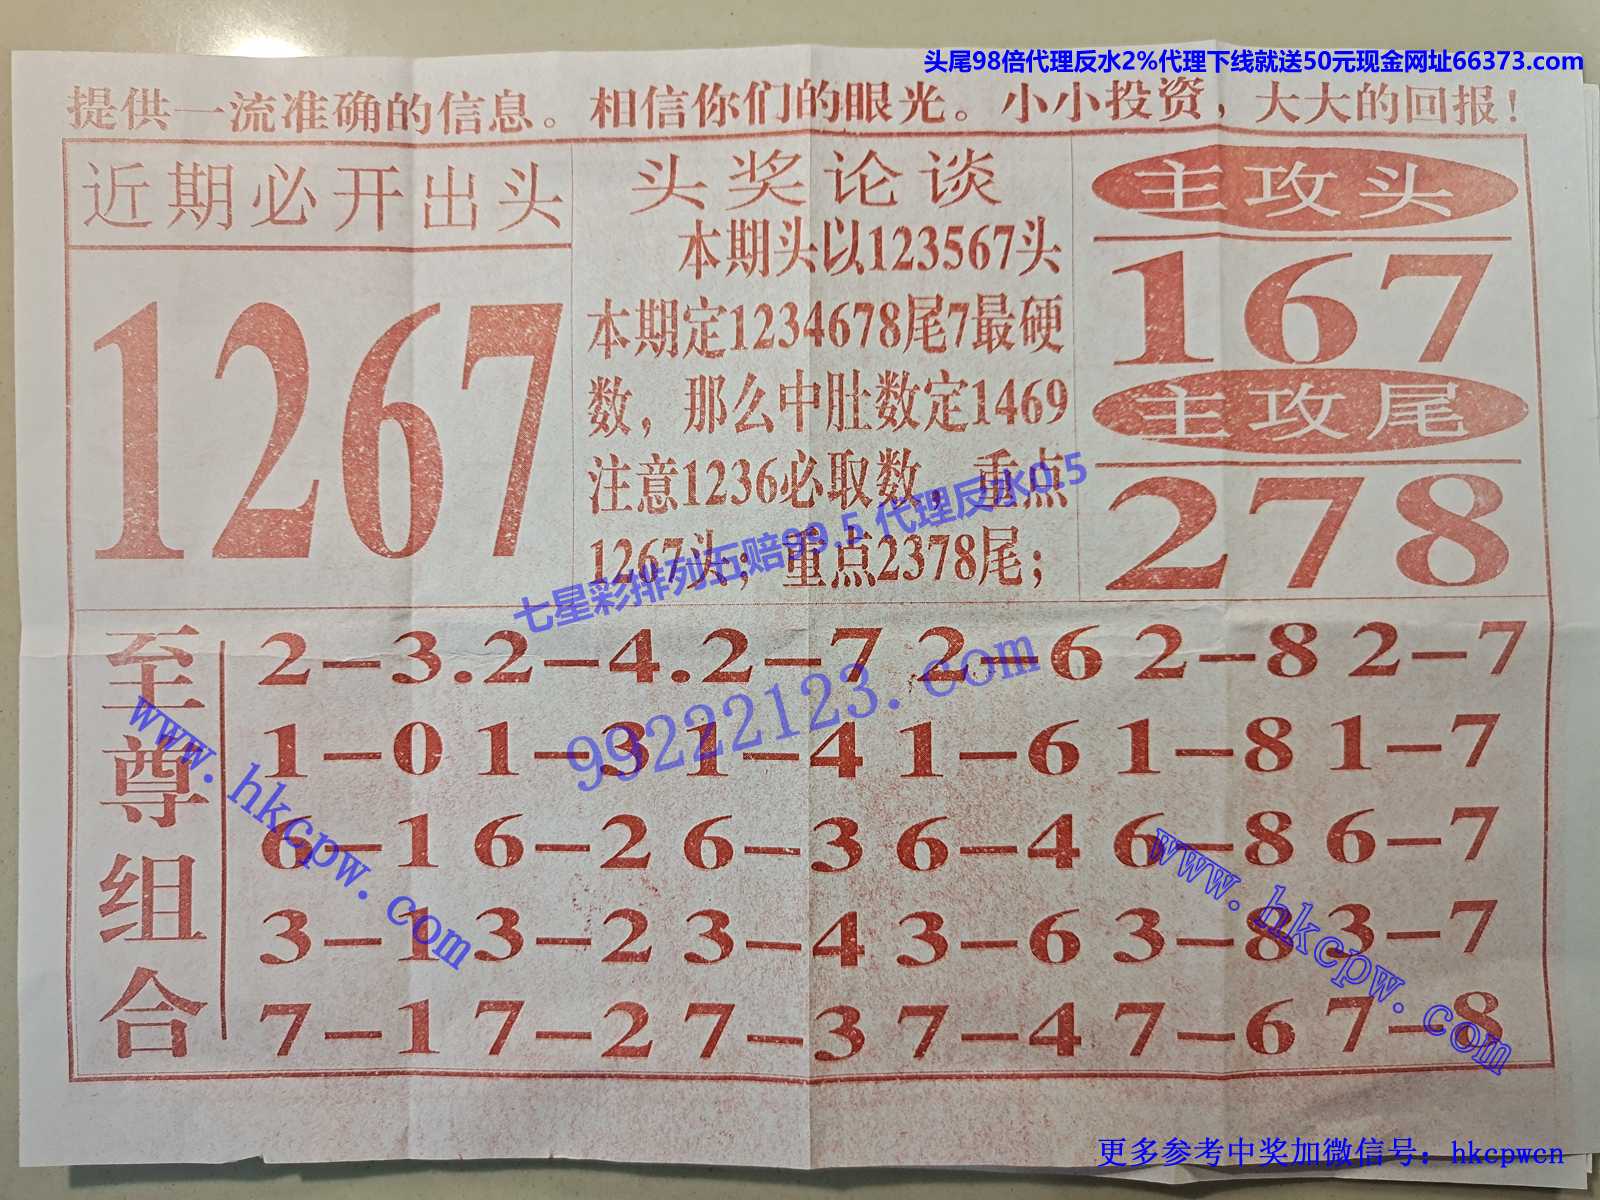 头尾98倍代理反水2%代理下线就送50元现金网址66373.com
提供一流准确的信息。相信你们的眼光。小小投资，大大的回报！
近期必开出头
1267
头奖论谈
本期头以123567头
本期定1234678尾7最硬
数，那么中肚数定1469
注意1236必取数，重点
1267头；重点2378尾；
主攻头
167
主攻尾
278
七星彩排列五赔99.5 代理反水0.5
99222123.com
至尊组合
2-3.2-4.2-7 2-6 2-8 2-7
1-0 1-3 1-4 1-6 1-8 1-7
6-1 6-2 6-3 6-4 6-8 6-7
3-1 3-2 3-4 3-6 3-8 3-7
7-1 7-2 7-3 7-4 7-6 7-8
www.hkcpw.com
www.hkcpw.com
更多参考中奖加微信号：hkcpwcn